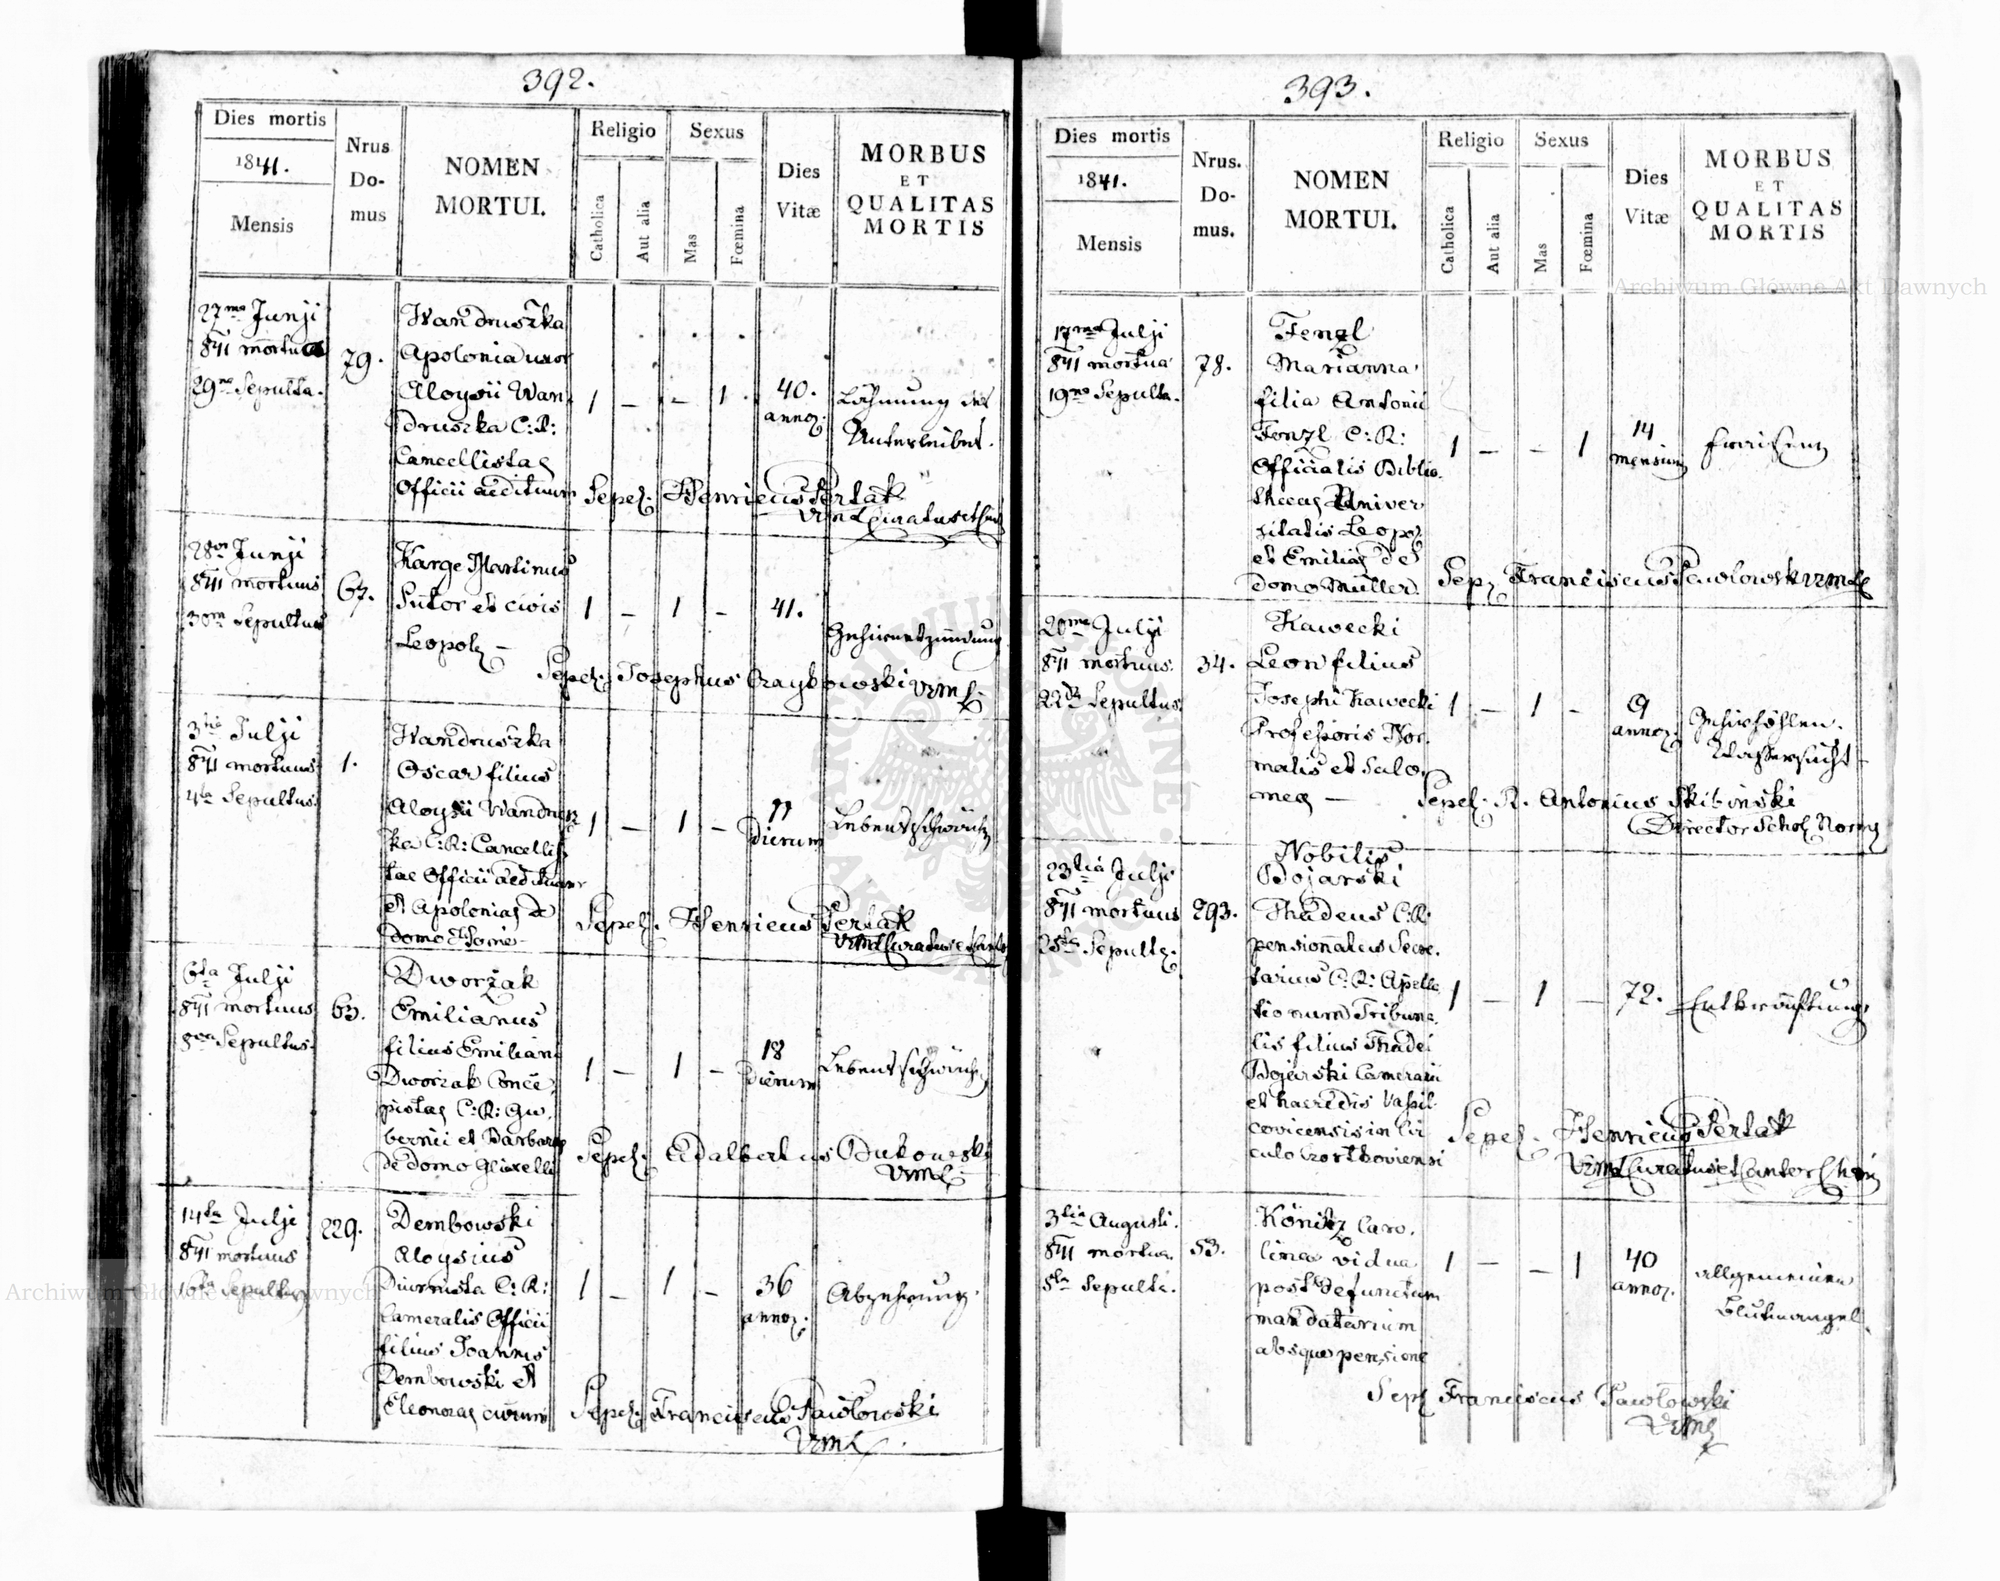 392.
Dies mortis
1841.
Mensis
Nrus
Do-
mus
NOMEN
MORTUI.
Religio
Catholica
Aut alia
Sexus
Mas
Fœmina
Dies
Vitæ
MORBUS
ET
QUALITAS
MORTIS
27ma Junji
841 mortua
29na Sepulta.
79.
Wandruszka
Apolonia uxor
Aloysii Wan
druszka C: R:
Cancellistae
Officii aedituum
1 — — 1
40.
annor.
Lähmung des
Unterleibes.
Sepel. Henricus Pertak
28va Junji
841 mortuus
30ma Sepultus
67.
Karge Martinus
Sutor et civis
Leopol. —
1 — 1 —
41.
Gehirnentzündung
Sepel. Josephus Czaykowski VRML.
3tia Julji
841 mortuus
4ta Sepultus.
1.
Wandruszka
Oscar filius
Aloysii Wandrusz
ka C: R: Cancellis
tae Officii aedituum
et Apoloniae de
domo
1 — 1 —
11
dierum
Lebensschwäche
Sepel. Henricus Pertak
VRML Curatus et
6ta Julji
841 mortuus
8va Sepultus.
63.
Dworżak
Emilianus
filius Emiliani
Dworżak Conce
pistae C: R: Gu.
bernii et Barbarae
de domo
1 — 1 —
18
dierum
Lebensschwäche
Sepel. Adalbertus Bukowski
VRML
14ta Julji
841 mortuus
16ta Sepultus
229.
Dembowski
Aloysius
Diurnista C: R:
Cameralis Officii
filius Joannis
Dembowski et
Eleonorae
1 — 1 —
36
annor.
Abzehrung.
Sepel. Franciscus Pawłowski
VRML.
393.
Dies mortis
1841.
Mensis
Nrus.
Do-
mus.
NOMEN
MORTUI.
Religio
Catholica
Aut alia
Sexus
Mas
Fœmina
Dies
Vitæ
MORBUS
ET
QUALITAS
MORTIS
17ma Julji
841 mortua
19na Sepulta.
78.
Fenzl
Marianna
filia Antonii
Fenzl C: R:
Officialis Biblio.
thecae Univer
sitatis Leopol.
et Emiliae de
domo Müller.
1 — — 1
14
mensium
Fraisen
Sepel. Franciscus Pawlowski VRML
20ma Julji
841 mortuus.
22da Sepultus.
34.
Kawecki
Leon filius
Josephi Kawecki
Professoris Nor.
malis et Salo.
meae —
1 — 1 —
9
annor.
Gehirnhöhlen.
Wassersucht —
Sepel. R. Antonius Skibinski
Director Schol. Norm
23tia Julji
841 mortuus
25ta Sepult.
293.
Nobilis
Bojarski
Thadeus C: R:
pensionatus Secre.
tarius C: R: Apella
tionum Tribuna.
lis filius Thadei
Bojarski Camerarii
et haeredis
covicensis in Cir
culo
1 — 1 —
72.
Entkräftung
Sepel. Henricus Pertak
VRML Curatus et Cantor Chori
3tia Augusti.
841 mortua.
5ta Sepulta.
53.
Könitz Caro.
lina vidua
post defunctum
mandatarium
absque pensione
1 — — 1
40
annor.
allgemeinen
Blutmangel.
Sepel. Franciscus Pawłowski
VRML
Archiwum Główne Akt Dawnych
Archiwum Główne Akt Dawnych
ARCHIWUM GŁÓWNE AKT DAWNYCH